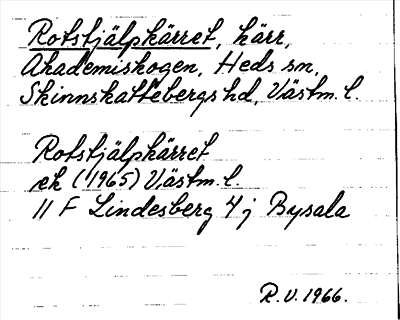 Rotstjälpkärret, kärr,
Akademiskogen, Heds sn,
Skinnskattebergs hd, Västm. l.
Rotstjälpkärret
ek (1965) Västm. l.
11 F Lindesberg 4 j Bysala
R. V. 1966.